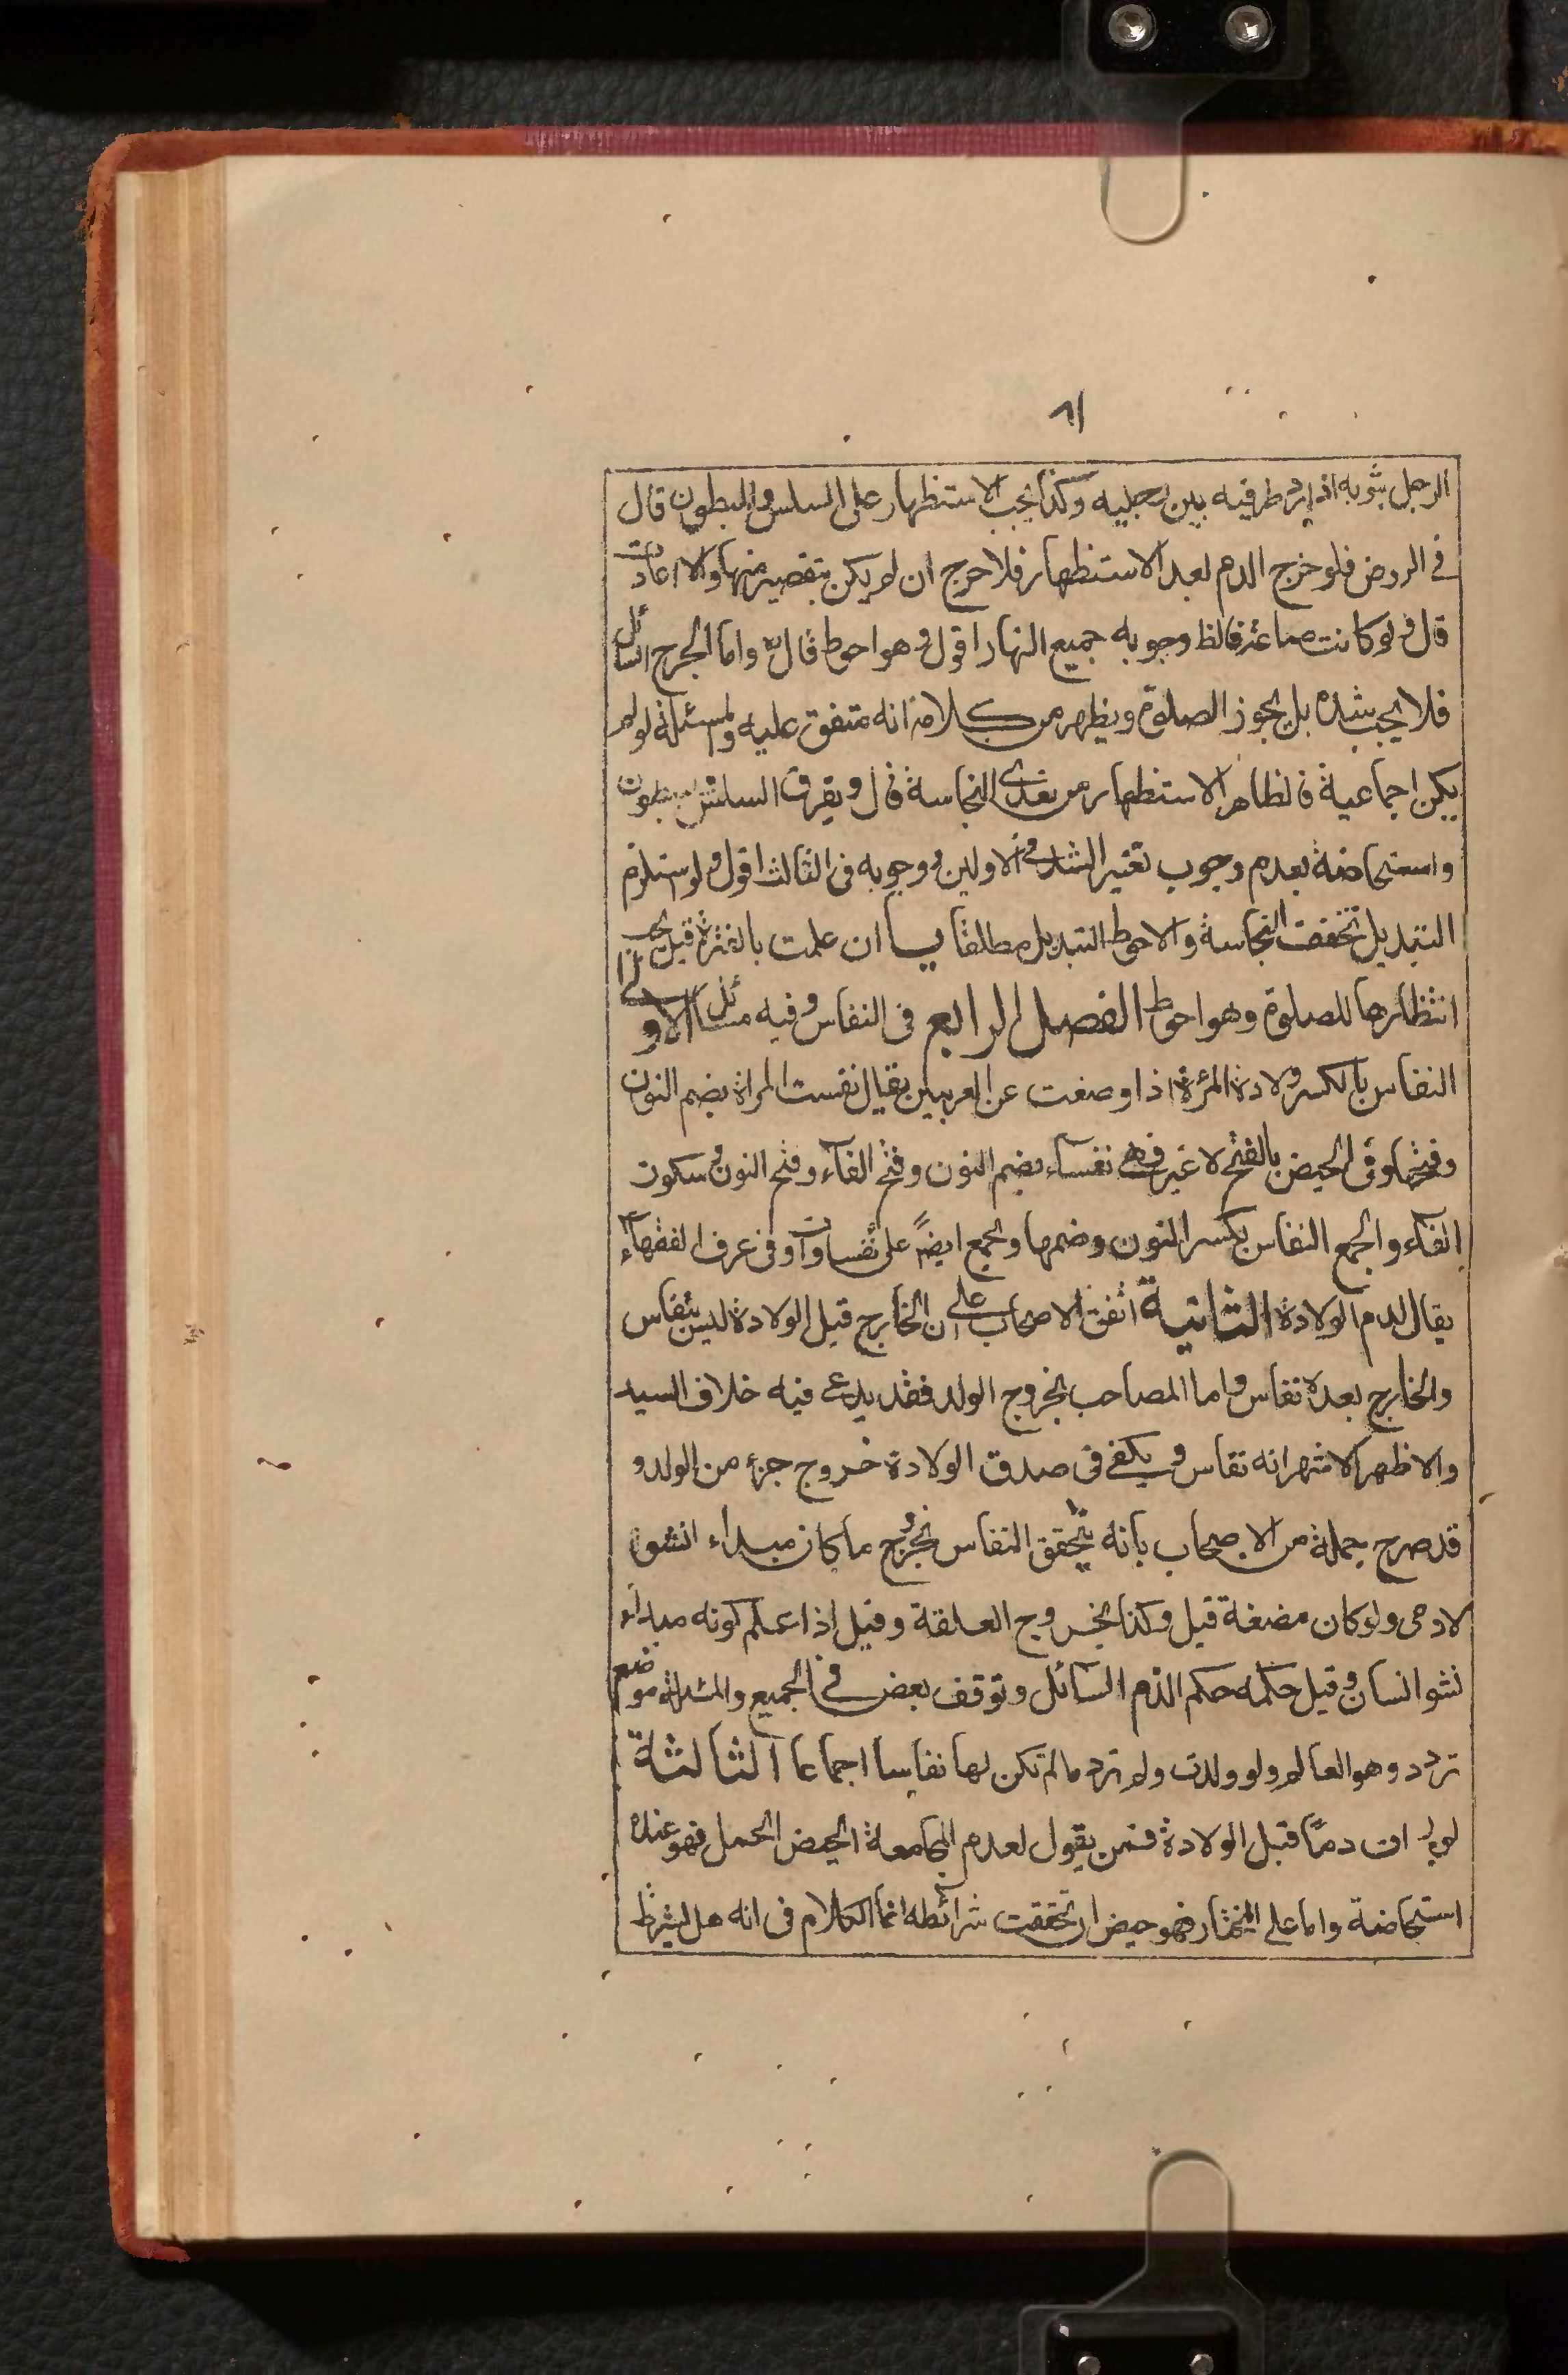 ٨١
الرجل بثوبه اذا رد طرفيه بين رجليه وكذا يجب الاستظهار على السلس والمبطون قال
فى الروض فلو خرج الدم بعد الاستظهار فلا حرج ان لم يكن بتقصير منها والا اعادت
قال ولو كانت صائمة فالظ وجوبه جميع النهار اقول وهو احوط قال واما الجرح السائل
فلا يجب شده بل يجوز الصلوة ويظهر من كلامه انه متفق عليه والمسئلة لو لم
يكن اجماعية فالظاهر الاستظهار من تعدى النجاسة قال ويفرق السلس
واستحاضة بعدم وجوب تغيير الشداد فى الاولين ووجوبه فى الثالث اقول ولو استلزم
التبديل تخفف النجاسة والاحوط التبديل مطلقا يا ان علمت بالفترة قيل يجب
انتظارها للصلوة وهو احوط الفصل الرابع فى النفاس وفيه مسائل الاولى
النفاس بالكسر ولادة المرئة اذا وضعت عن العربيين يقال نفست المراة بضم النون
وفتحها وفى الحيض بالفتح لا غير فهى نفساء بضم النون وفتح الفاء وفتح النون وسكون
الفاء والجمع النفاس بكسر النون وضمها والجمع ايضا على نفساوات وفى عرف الفقهاء
يقال لدم الولادة الثانية اتفق الاصحاب على ان الخارج قبل الولادة ليس بنفاس
والخارج بعده نفاس واما المصاحب لخروج الولد فقد يدعى فيه خلاف السيد
والاظهر الاشهر انه نفاس ويكفى فى صدق الولادة خروج جزء من الولد و
قد صرح جملة من الاصحاب بانه يتحقق النفاس بخروج ما كان مبداء انشو
لادمى ولو كان مضغة قيل وكذا بخروج العلقة وقيل اذا علم كونه مبداء
نشو انسان وقيل حكمه حكم الدم السائل وتوقف بعض فى الجميع والمسئلة موضع
تردد وهو العالم ولو ولدت ولم ترد ما لم تكن لها نفاسا اجماعا الثالثة
لو رات دما قبل الولادة فمن يقول لعدم المجامعة الحيض الحمل فهو عنده
استحاضة واما على المختار فهو حيض ان تحققت شرائطه انما الكلام فى انه هل يشترط